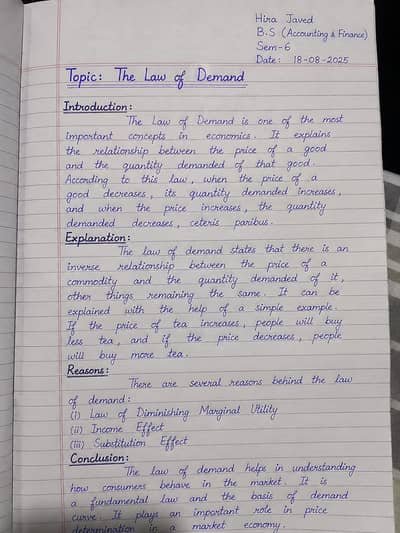 Hira Javed
B.S (Accounting & Finance)
Sem-6
Date: 18-08-2025
Topic: The Law of Demand
Introduction:
The Law of Demand is one of the most
important concepts in economics. It explains
the relationship between the price of a good
and the quantity demanded of that good.
According to this law, when the price of a
good decreases, its quantity demanded increases,
and when the price increases, the quantity
demanded decreases, ceteris paribus.
Explanation:
The law of demand states that there is an
inverse relationship between the price of a
commodity and the quantity demanded of it,
other things remaining the same. It can be
explained with the help of a simple example.
If the price of tea increases, people will buy
less tea, and if the price decreases, people
will buy more tea.
Reasons:
There are several reasons behind the law
of demand:
(i) Law of Diminishing Marginal Utility
(ii) Income Effect
(iii) Substitution Effect
Conclusion:
The law of demand helps in understanding
how consumers behave in the market. It is
a fundamental law and the basis of demand
curve. It plays an important role in price
determination in a market economy.